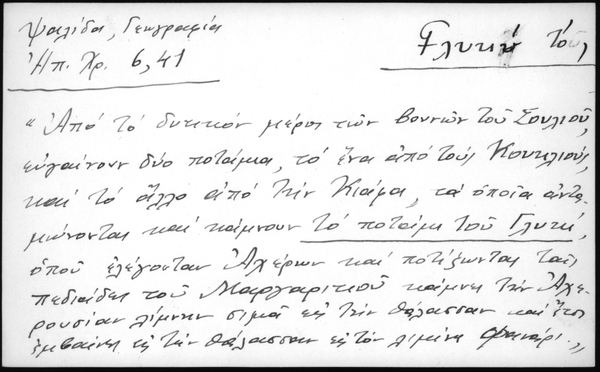 Ψαλίδα, Γεωγραφία
Ἠπ. Χρ. 6,41
Γλυκύ τοῦ
"Ἀπό τό δυτικόν μέρος τῶν βουνῶν τοῦ Σουλιοῦ,
εὐγαίνουν δύο ποτάμια, τό ἕνα ἀπό τούς Κουκλιούς,
καί τό ἄλλο ἀπό τήν Κιάφα, τά ὁποῖα ἀντα-
μώνονται καί κάμνουν τό ποτάμι τοῦ Γλυκύ,
ὁποῦ ἐλέγονταν Ἀχέρων καί ποτίζωντας ταῖς
πεδιάδες τοῦ Μαργαριτιοῦ κάμνει τήν Ἀχε-
ρουσίαν λίμνην σιμᾶ εἰς τήν θάλασσαν καί ἔτσι
ἐμβαίνει εἰς τήν θάλασσαν εἰς τόν λιμένα Φανάρι.„